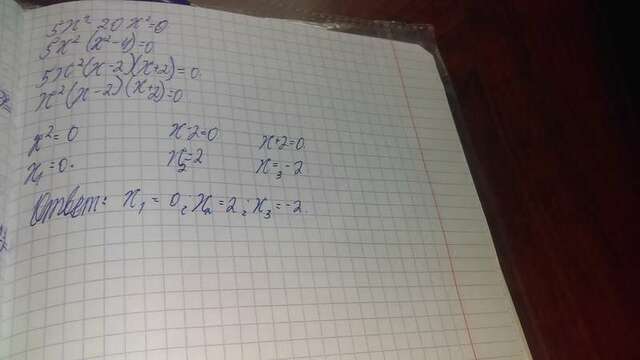 5x² 20x²=0
5x²(x²-4)=0
5x²(x-2)(x+2)=0
x²(x-2)(x+2)=0
x²=0 x-2=0 x+2=0
x₁=0. x₂=2 x₃=-2
Ответ: x₁=0; x₂=2; x₃=-2.